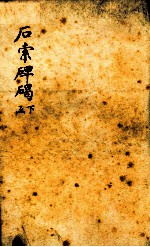 石索碑碣
五下